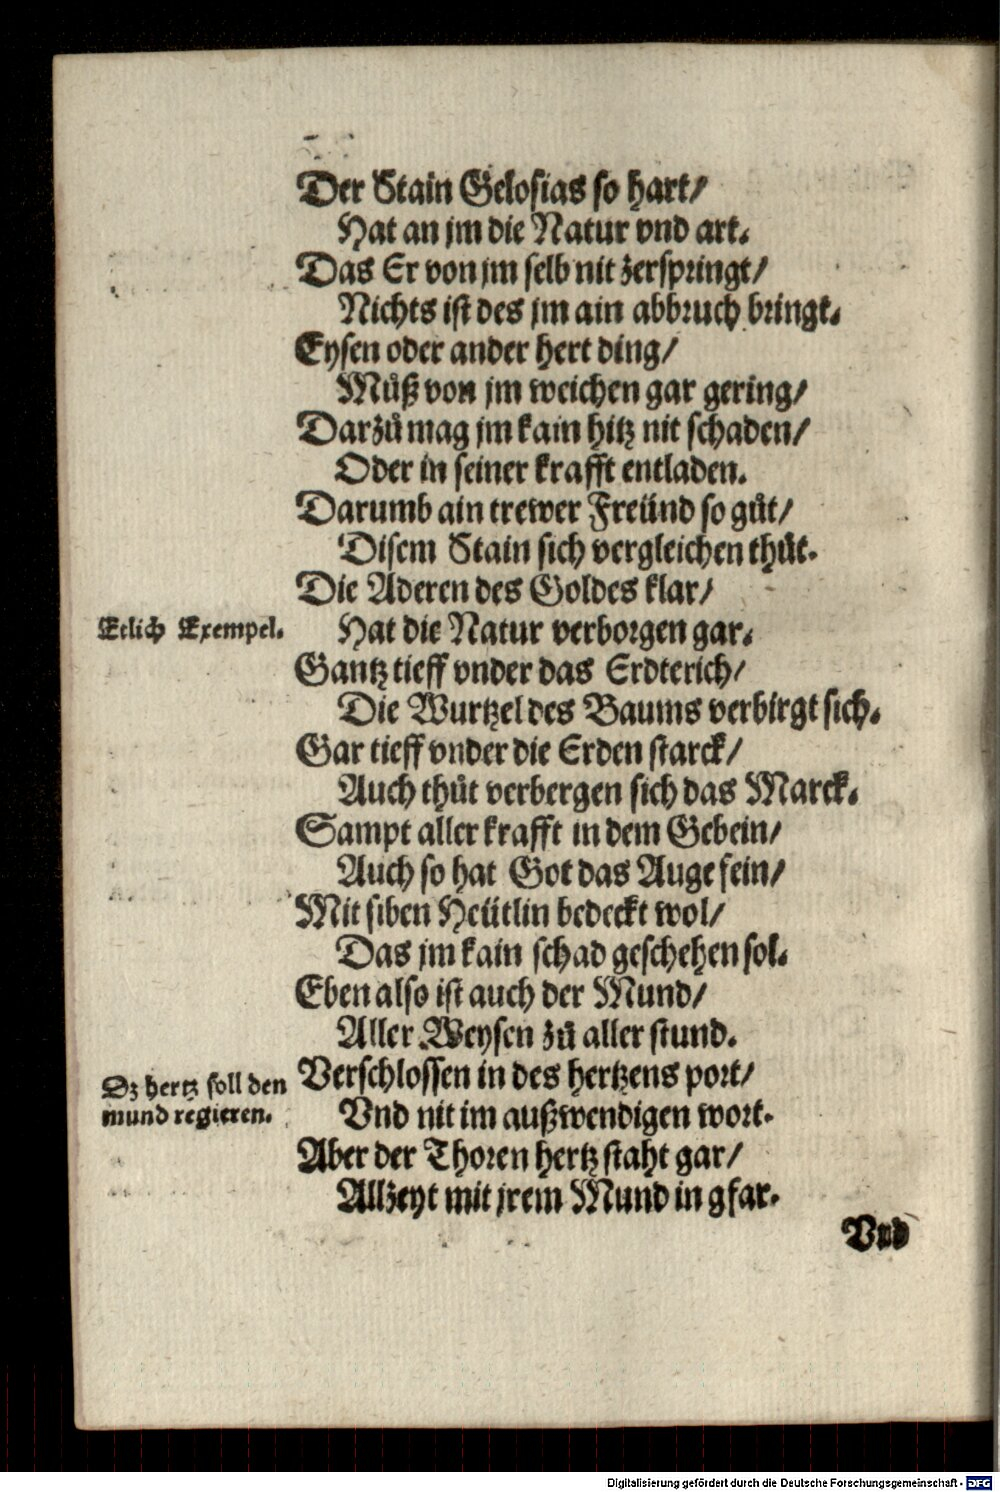 Der Stain Gelosias so hart/
Hat an jm die Natur vnd art.
Das Er von jm selb nit zerspringt/
Nichts ist des jm ain abbruch bringt.
Eysen oder ander hert ding/
Můß von jm weichen gar gering/
Darzů mag jm kain hitz nit schaden/
Oder in seiner krafft entladen.
Darumb ain trewer Freünd so gůt/
Disem Stain sich vergleichen thůt.
Die Aderen des Goldes klar/
Etlich Exempel.
Hat die Natur verborgen gar.
Gantz tieff vnder das Erdterich/
Die Wurtzel des Baums verbirgt sich.
Gar tieff vnder die Erden starck/
Auch thůt verbergen sich das Marck.
Sampt aller krafft in dem Gebein/
Auch so hat Got das Auge fein/
Mit siben Heütlin bedeckt wol/
Das jm kain schad geschehen sol.
Eben also ist auch der Mund/
Aller Weysen zů aller stund.
Dz hertz soll den
mund regieren.
Verschlossen in des hertzens port/
Vnd nit im außwendigen wort.
Aber der Thoren hertz staht gar/
Allzeyt mit jrem Mund in gfar.
Vnd
Digitalisierung gefördert durch die Deutsche Forschungsgemeinschaft - DFG